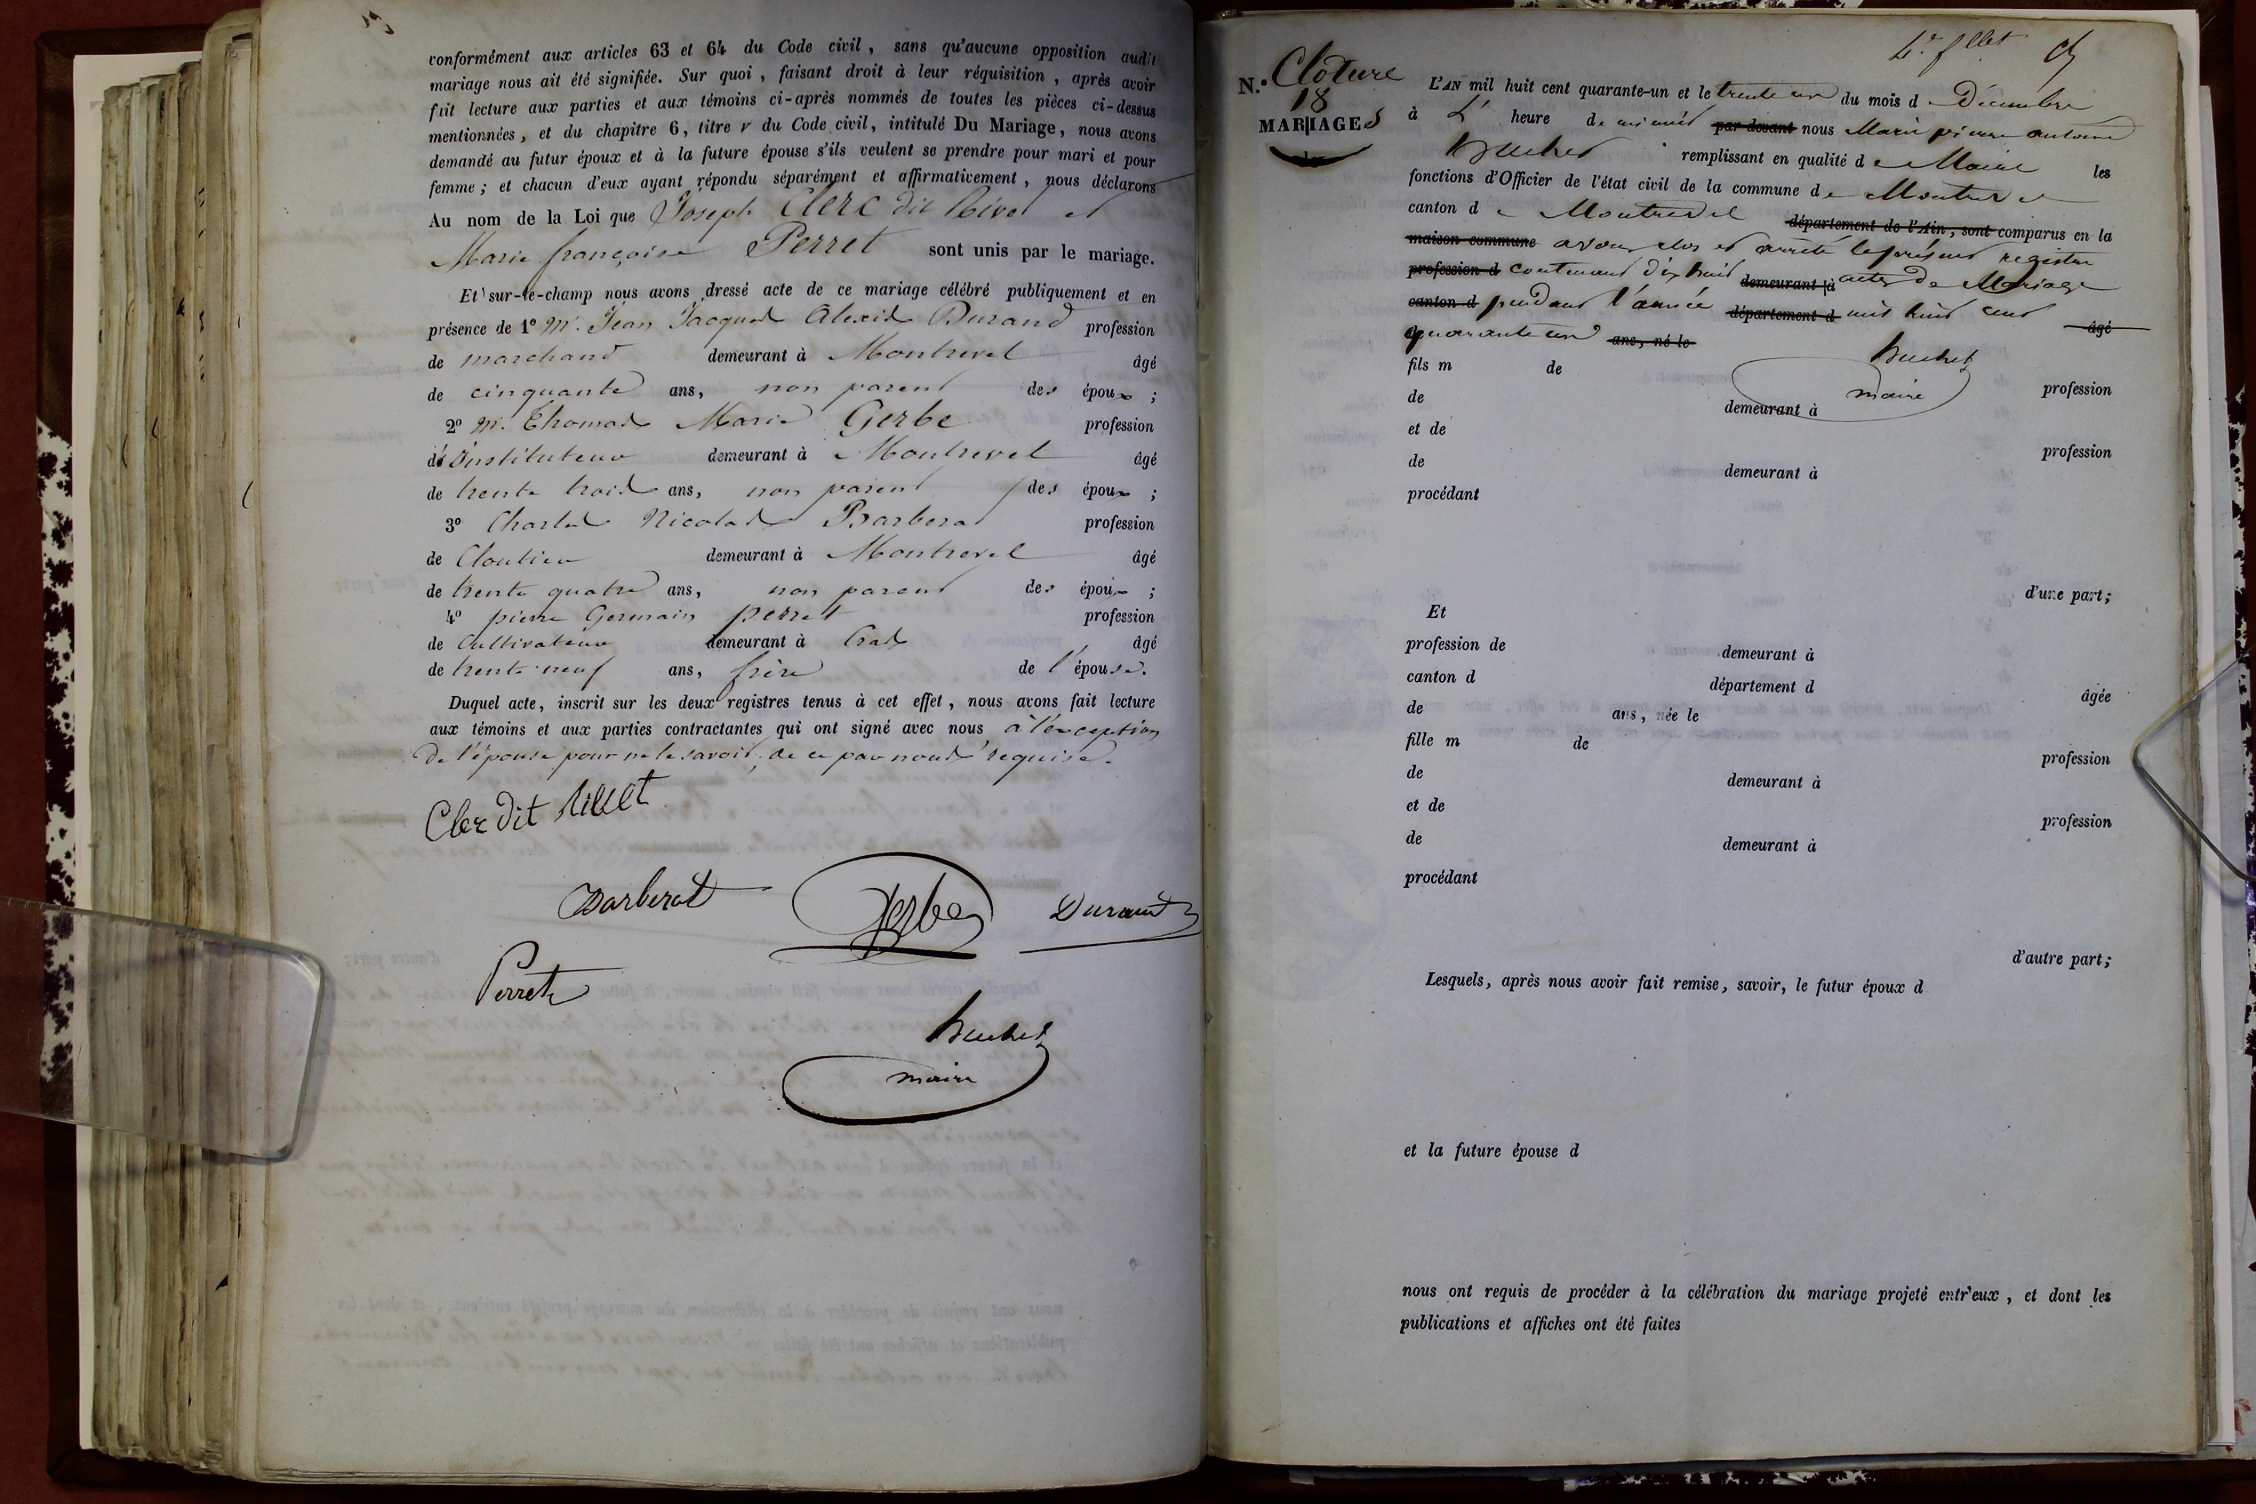 conformément aux articles 63 et 64 du Code civil, sans qu'aucune opposition audit
mariage nous ait été signifiée. Sur quoi, faisant droit à leur réquisition, après avoir
fait lecture aux parties et aux témoins ci-après nommés de toutes les pièces ci-dessus
mentionnées, et du chapitre 6, titre v du Code civil, intitulé Du Mariage, nous avons
demandé au futur époux et à la future épouse s'ils veulent se prendre pour mari et pour
femme ; et chacun d'eux ayant répondu séparément et affirmativement, nous déclarons
Au nom de la Loi que Joseph Clerc dit et
Marie françoise Perret sont unis par le mariage.
Et sur-le-champ nous avons dressé acte de ce mariage célébré publiquement et en
présence de 1º Mr. Jean Jacques Alexis Durand profession
de marchand demeurant à Montrevel âgé
de cinquante ans, non parent des époux ;
2º Mr. Thomas Marie Gerbe profession
d'instituteur demeurant à Montrevel âgé
de trente trois ans, non parent des époux ;
3º Charles Nicolas Barberat profession
de Cloutier demeurant à Montrevel âgé
de trente quatre ans, non parent des époux ;
4º pierre Germain perret profession
de Cultivateur demeurant à Cras âgé
de trente neuf ans, frère de l'épouse.
Duquel acte, inscrit sur les deux registres tenus à cet effet, nous avons fait lecture
aux témoins et aux parties contractantes qui ont signé avec nous à l'exception
de l'épouse pour ne le savoir, de ce par nous requise.
Clerc dit
Barberat Gerbe Durand
Perret
Buchet
maire
4e. fllet
N.º Cloture
18
MARIAGES
L'AN mil huit cent quarante-un et le trente un du mois d e Décembre
à L' heure de minuit par devant nous Marie pierre antoine
Buchet remplissant en qualité d e Maire les
fonctions d'Officier de l'état civil de la commune d e Montrevel
canton d e Montrevel département de l'Ain, sont comparus en la
maison commune avons clos et arrêté le présent registre
profession d contenant dix huit demeurant à actes de Mariage
canton d pendant l'année département d mil huit cent âgé
quarante un ans, né le
Buchet
fils m de
maire
de demeurant à profession
et de
de demeurant à profession
procédant
d'une part;
Et
profession de demeurant à
canton d département d
de ans, née le âgée
fille m de
de demeurant à profession
et de
de demeurant à profession
procédant
d'autre part;
Lesquels, après nous avoir fait remise, savoir, le futur époux d
et la future épouse d
nous ont requis de procéder à la célébration du mariage projeté entr'eux, et dont les
publications et affiches ont été faites